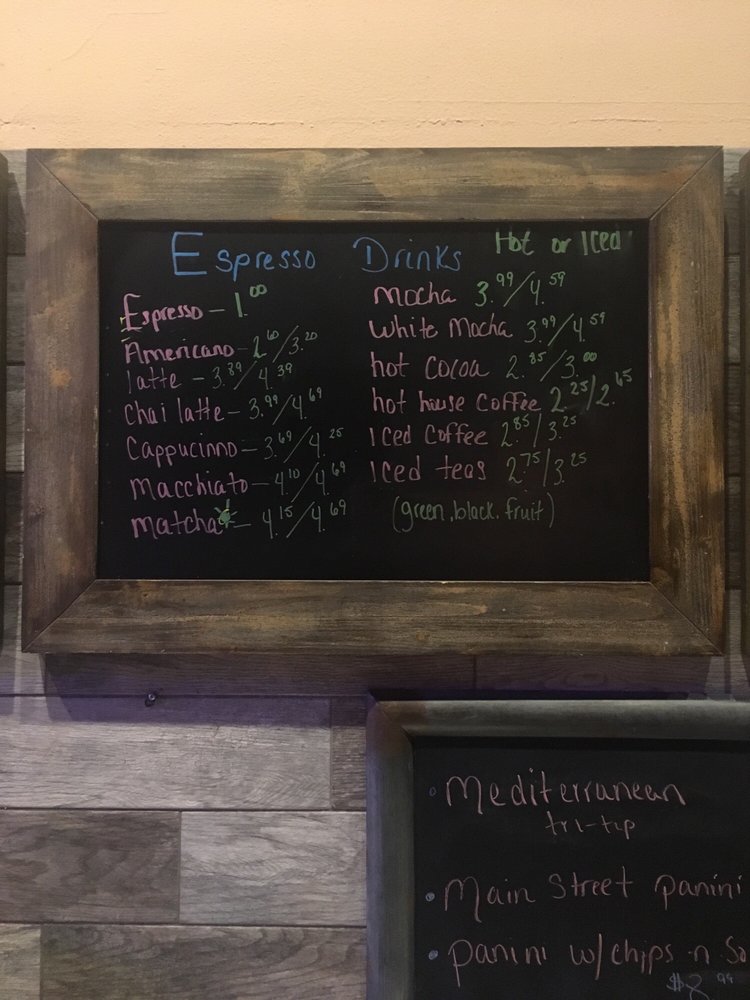 Espresso Drinks Hot or Iced
Espresso - 1.00
Americano - 2.60/3.20
latte - 3.89/4.39
chai latte - 3.99/4.69
Cappucinno - 3.69/4.25
Macchiato - 4.10/4.69
matcha - 4.15/4.69
Mocha 3.99/4.59
White Mocha 3.99/4.59
hot cocoa 2.85/3.00
hot house coffee 2.25/2.65
Iced Coffee 2.85/3.25
Iced teas 2.75/3.25
(green, black. fruit)
• Mediterranean
tri-tip
• Main Street panini
• panini w/chips n So
$8.99